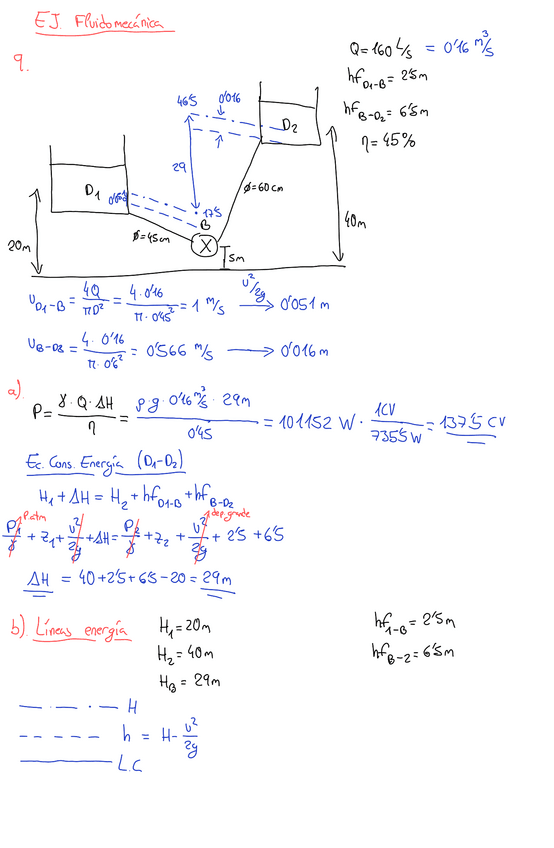 EJ. Fluidomecánica
9.
Q = 160 L/s = 0'16 m³/s
hf D1-B = 2'5m
hf B-D2 = 6'5m
η = 45%
46'5
0'016
D2
29
Ø=60cm
D1
17'5
B
Ø=45cm
X
20m
40m
5m
υ D1-B = 4Q/πD² = 4·0'16/π·0'45² = 1 m/s → υ²/2g 0'051 m
υ B-D2 = 4·0'16/π·0'6² = 0'566 m/s → 0'016m
a)
P = γ·Q·ΔH/η = ρ·g·0'16 m³/s·29m/0'45 = 101152 W · 1CV/735'5W = 137'5 CV
Ec. Cons. Energía (D1-D2)
H1 + ΔH = H2 + hf D1-B + hf B-D2
P.atm
dep. grande
P1/γ + z1 + υ²/2g + ΔH = P2/γ + z2 + υ²/2g + 2'5 + 6'5
ΔH = 40+2'5+6'5-20 = 29m
b) Líneas energía
H1 = 20m
hf 1-B = 2'5m
H2 = 40m
hf B-2 = 6'5m
HB = 29m
H
h = H - υ²/2g
L.C